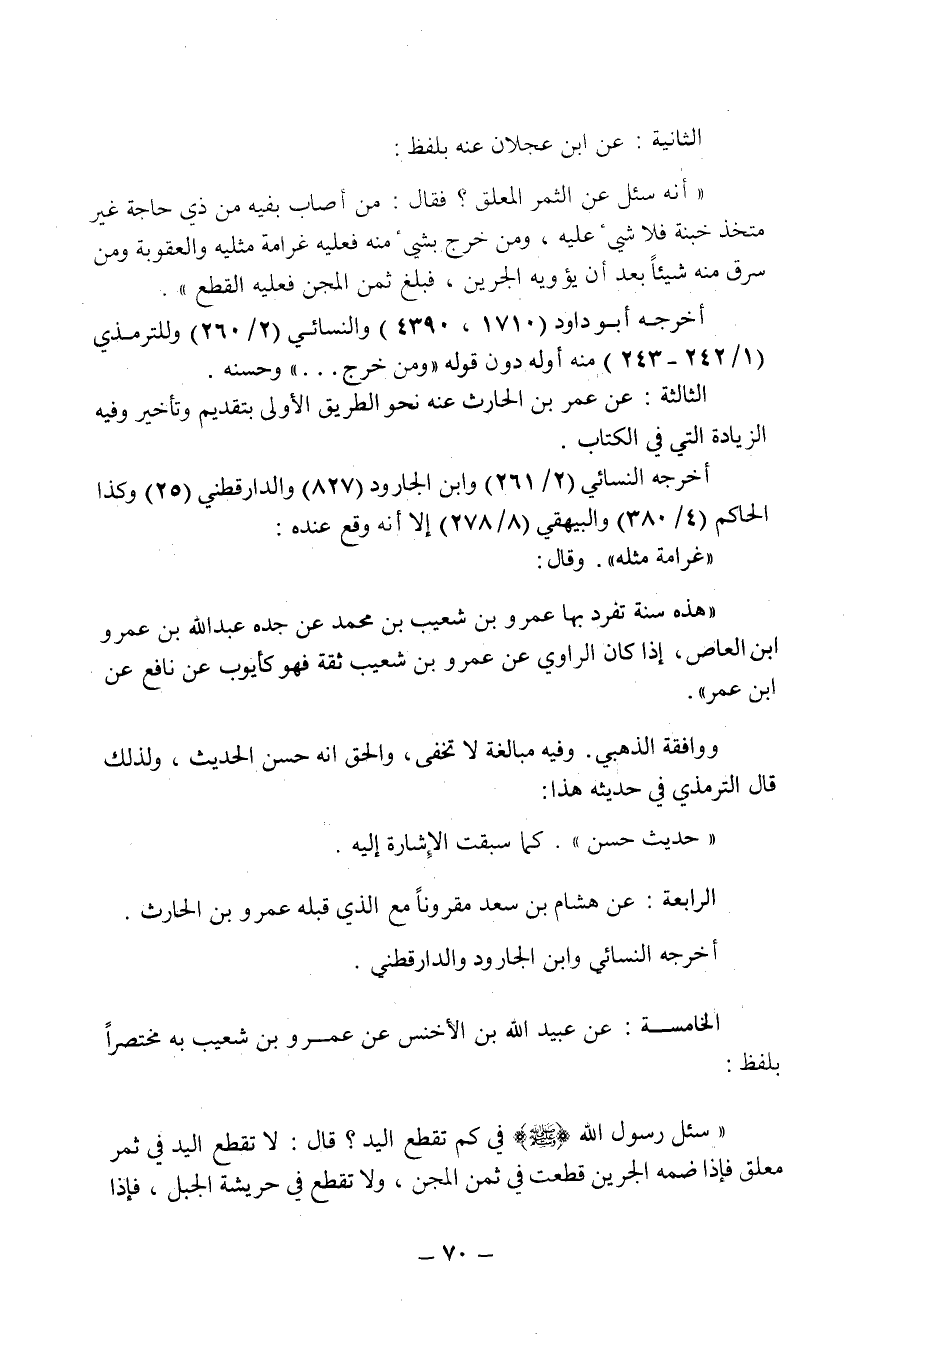 الثانية : عن ابن عجلان عنه بلفظ :
« أنه سئل عن الثمر المعلق ؟ فقال : من أصاب بفيه من ذي حاجة غير
متخذ خبنة فلا شيء عليه ، ومن خرج بشيء منه فعليه غرامة مثليه والعقوبة ومن
سرق منه شيئاً بعد أن يؤويه الجرين ، فبلغ ثمن المجن فعليه القطع » .
أخرجه أبو داود (١٧١٠ ، ٤٣٩٠ ) والنسائي (٢/ ٢٦٠) وللترمذي
(١/ ٢٤٢ - ٢٤٣ ) منه أوله دون قوله «ومن خرج . . .» وحسنه .
الثالثة : عن عمر بن الحارث عنه نحو الطريق الأولى بتقديم وتأخير وفيه
الزيادة التي في الكتاب .
أخرجه النسائي (٢/ ٢٦١) وابن الجارود (٨٢٧) والدارقطني (٢٥) وكذا
الحاكم (٤/ ٣٨٠) والبيهقي (٨/ ٢٧٨) إلا أنه وقع عنده :
«غرامة مثله» . وقال :
«هذه سنة تفرد بها عمرو بن شعيب بن محمد عن جده عبدالله بن عمرو
ابن العاص، إذا كان الراوي عن عمرو بن شعيب ثقة فهو كأيوب عن نافع عن
ابن عمر» .
ووافقة الذهبي . وفيه مبالغة لا تخفى ، والحق انه حسن الحديث ، ولذلك
قال الترمذي في حديثه هذا :
« حديث حسن » . كما سبقت الإشارة إليه .
الرابعة : عن هشام بن سعد مقروناً مع الذي قبله عمرو بن الحارث .
أخرجه النسائي وابن الجارود والدارقطني .
الخامسة : عن عبيد الله بن الأخنس عن عمرو بن شعيب به مختصراً
بلفظ :
« سئل رسول الله ﷺ في كم تقطع اليد ؟ قال : لا تقطع اليد في ثمر
معلق فإذا ضمه الجرين قطعت في ثمن المجن ، ولا تقطع في حريشة الجبل ، فإذا
– ٧٠ –